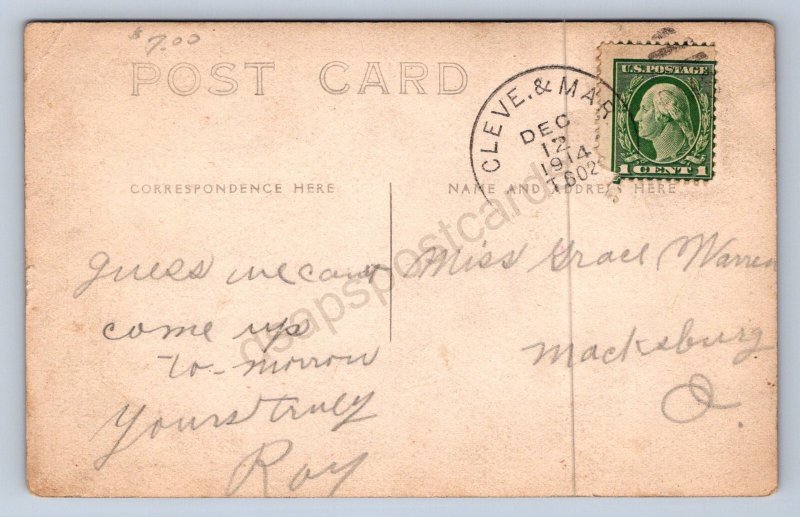 $7.00
POST CARD
CLEVE. & MAR
DEC
12
1914
T.602
U.S. POSTAGE
1 CENT 1
CORRESPONDENCE HERE
NAME AND ADDRESS HERE
Guess we cant
come up
to-morrow
Yours truly
Roy
Miss Grace Warren
Macksburg
O.